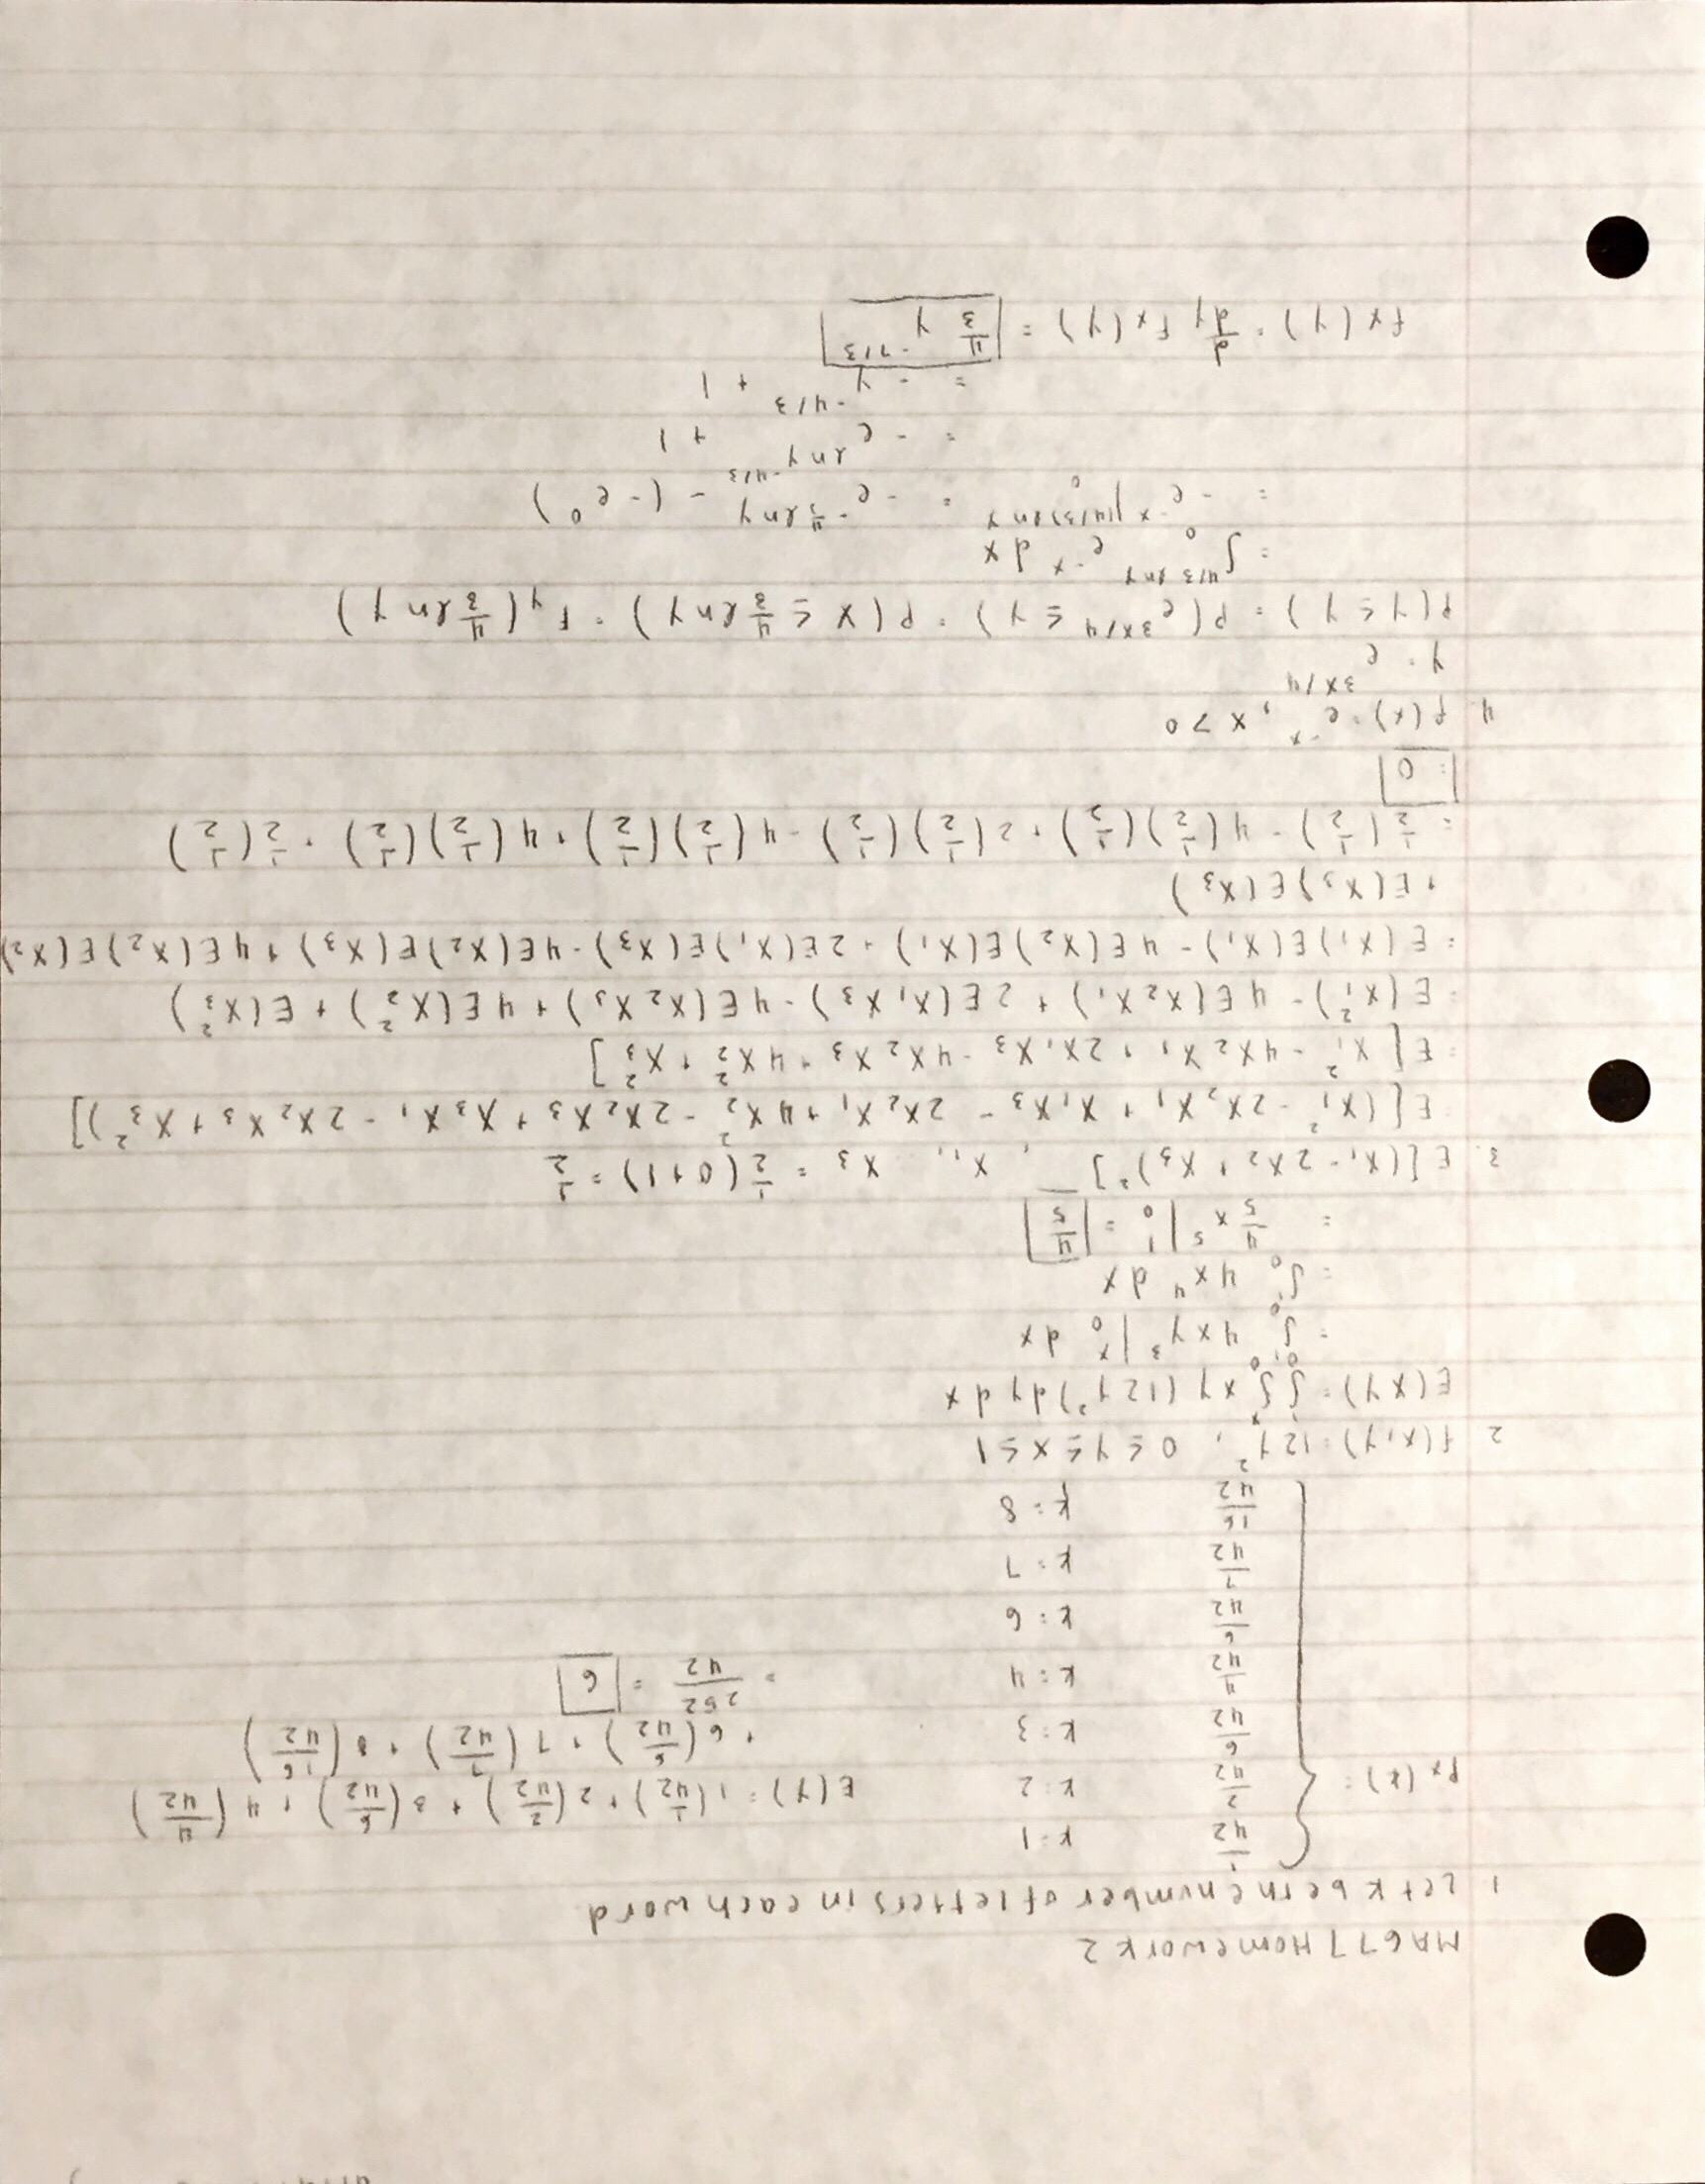 MA677 Homework 2
1 Let k be the number of letters in each word
px(k) = { 1/42 k=1
2/42 k=2 E(Y) = 1(1/42) + 2(2/42) + 3(6/42) + 4(4/42)
6/42 k=3 + 6(6/42) + 7(7/42) + 8(16/42)
4/42 k=4 = 252/42 = 6
6/42 k=6
7/42 k=7
16/42 k=8
2 f(x,y) = 12y², 0 ≤ y ≤ x ≤ 1
E(XY) = ∫₀¹∫₀ˣ xy (12y²) dy dx
= ∫₀¹ 4xy³ |₀ˣ dx
= ∫₀¹ 4x⁴ dx
= 4/5 x⁵ |₀¹ = 4/5
3. E[(X₁ - 2X₂ + X₃)²], X₁, ... X₃ = 1/2 (0+1) = 1/2
E[(X₁² - 2X₂X₁ + X₁X₃ - 2X₂X₁ + 4X₂² - 2X₂X₃ + X₃X₁ - 2X₂X₃ + X₃²)]
= E[X₁² - 4X₂X₁ + 2X₁X₃ - 4X₂X₃ + 4X₂² + X₃²]
= E(X₁²) - 4E(X₂X₁) + 2E(X₁X₃) - 4E(X₂X₃) + 4E(X₂²) + E(X₃²)
= E(X₁)E(X₁) - 4E(X₂)E(X₁) + 2E(X₁)E(X₃) - 4E(X₂)E(X₃) + 4E(X₂)E(X₂)
+ E(X₃)E(X₃)
= 1/2(1/2) - 4(1/2)(1/2) + 2(1/2)(1/2) - 4(1/2)(1/2) + 4(1/2)(1/2) + 1/2(1/2)
= 0
4 f(x) = e^-x, x > 0
y = e^3x/4
P(Y ≤ y) = P(e^3x/4 ≤ y) = P(X ≤ 4/3 ln y) = Fy(4/3 ln y)
= ∫₀^4/3 ln y e^-x dx
= -e^-x |₀^(4/3) ln y = -e^-4/3 ln y - (-e⁰)
= -e^ln y^-4/3 + 1
= -y^-4/3 + 1
fx(y) = d/dy Fx(y) = 4/3 y^-7/3